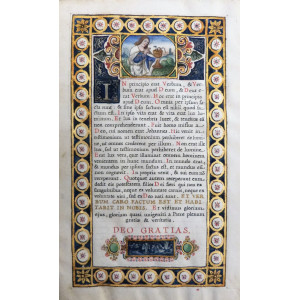 IN principio erat Verbum, & Ver-
bum erat apud Deum, & Deus e-
rat Verbum. Hoc erat in principio
apud Deum. Omnia per ipsum fa-
cta sunt, & sine ipso factum est nihil quod factum
est. In ipso vita erat & vita erat lux
hominum. Et lux in tenebris lucet, & tenebræ
eam non comprehenderunt. Fuit homo missus a
Deo, cui nomen erat Johannes. Hic venit in
testimonium ut testimonium perhiberet de lumine,
ut omnes crederent per illum. Non erat ille
lux, sed ut testimonium perhiberet de lumine.
Erat lux vera, quæ illuminat omnem hominem
venientem in hunc mundum. In mundo erat
& mundus per ipsum factus est, & mundus eum
non cognovit. In propria venit, & sui eum
non receperunt. Quotquot autem receperunt eum,
dedit eis potestatem filios Dei fieri his qui non ex
sanguinibus, neque ex voluntate carnis, neque ex
voluntate viri, sed ex Deo nati sunt. ET VER-
BUM CARO FACTUM EST, ET HABI-
TAVIT IN NOBIS. Et vidimus gloriam
ejus, gloriam quasi unigeniti a Patre plenum
gratiæ & veritatis.
DEO GRATIAS.